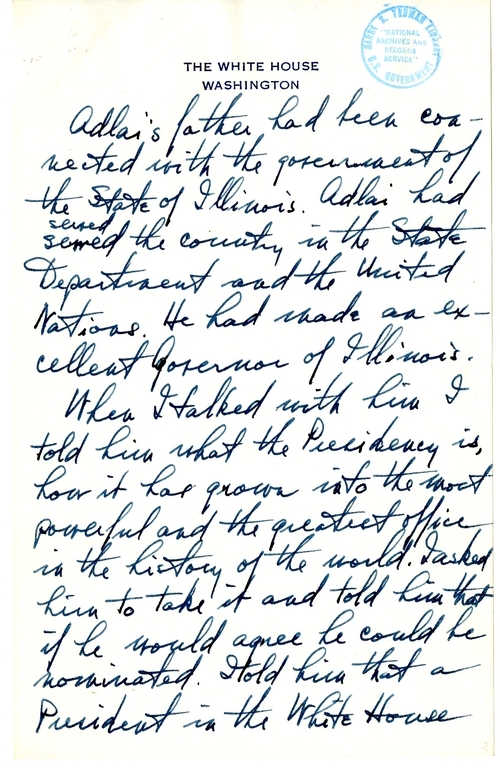 HARRY S. TRUMAN LIBRARY
"NATIONAL
ARCHIVES AND
RECORDS
SERVICE"
U.S. GOVERNMENT
THE WHITE HOUSE
WASHINGTON
Adlai's father had been con-
nected with the government of
the State of Illinois. Adlai had
served
served the country in the State
Department and the United
Nations. He had made an ex-
cellent Governor of Illinois.
When I talked with him I
told him what the Presidency is,
how it has grown into the most
powerful and the greatest office
in the history of the world. I asked
him to take it and told him that
if he would agree he could be
nominated. I told him that a
President in the White House